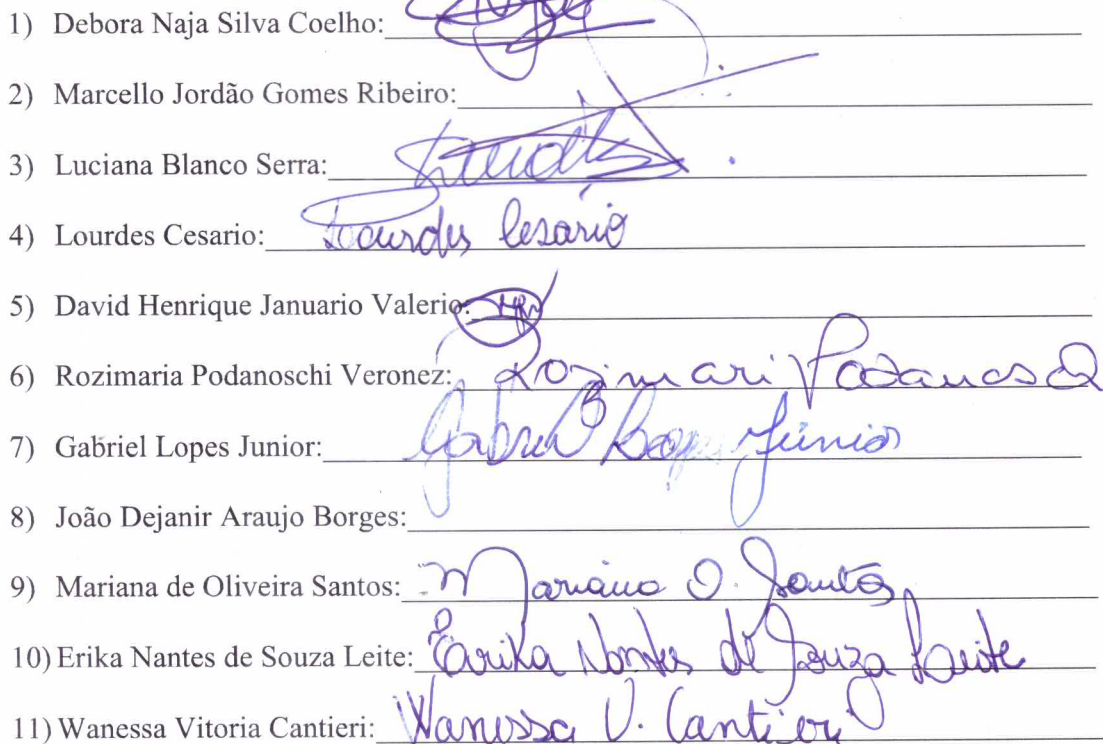 1) Debora Naja Silva Coelho:
2) Marcello Jordão Gomes Ribeiro:
3) Luciana Blanco Serra:
4) Lourdes Cesario: Lourdes Cesario
5) David Henrique Januario Valerio:
6) Rozimaria Podanoschi Veronez: Rozimari Podanos
7) Gabriel Lopes Junior: Gabriel Lopes Júnior
8) João Dejanir Araujo Borges:
9) Mariana de Oliveira Santos: Mariana O. Santos
10) Erika Nantes de Souza Leite: Erika Nantes de Souza Leite
11) Wanessa Vitoria Cantieri: Wanessa V. Cantieri